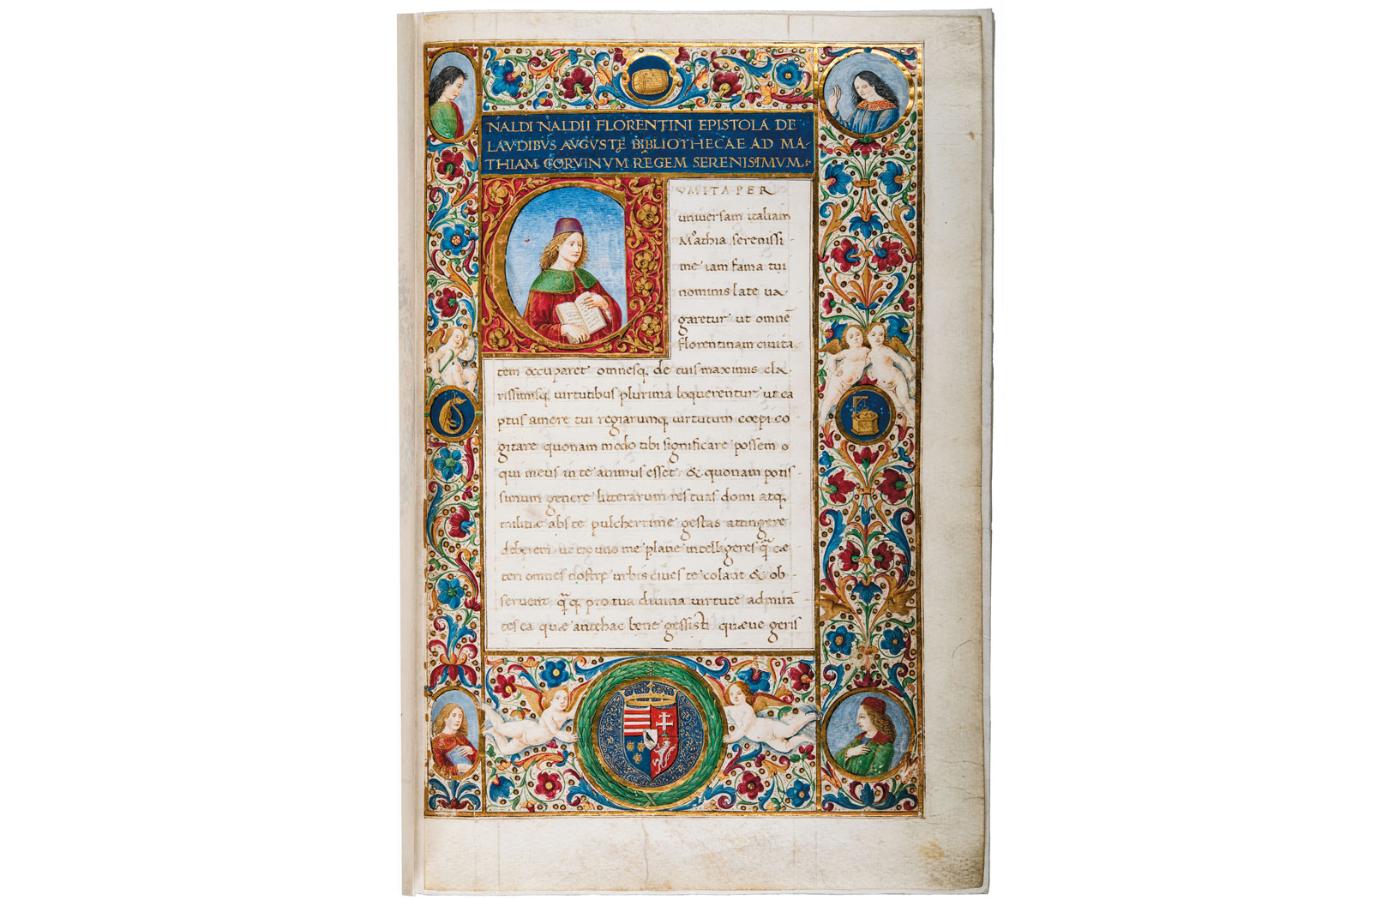 NALDI NALDII FLORENTINI EPISTOLA DE
LAVDIBVS AVGVSTĘ BIBLIOTHECAE AD MA-
THIAM CORVINVM REGEM SERENISIMVM.
VM ITA PER
universam italiam
Mathia serenissi-
me iam fama tui
nominis late va
garetur ut omnē
florentinam civita
tem occuparet omnesq; de tuis maximis cla
rissimisq; virtutibus plurima loquerentur ut ca
ptus amore tui regiarumq; virtutum coepi co
gitare quonam modo tibi significare possem
qui meus in te animus esset & quonam potis-
simum genere litterarum res tuas domi atq;
militiae abs te pulcherrime gestas attingere
deberem ut ex uno me plane intelligeres q̄ cæ
teri omnes nostrę urbis cives te colant & ob-
servent q̄q; pro tua divina virtute admirā
tes ea quæ antehac bene gessisti quæve geris